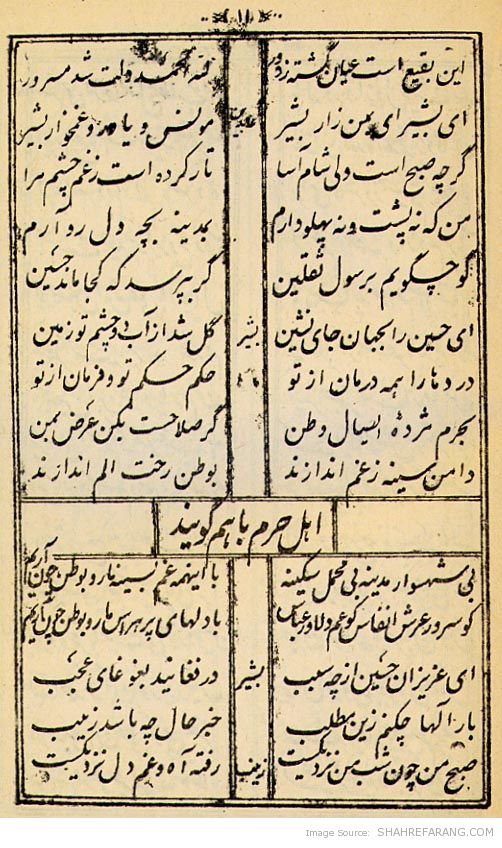 ۱۱
این بقیع است عیان گشته زدور لله الحمد دلت شد مسرور
ای بشیر ای من زار بشیر مونس و یاور و غمخوار بشیر
گرچه صبح است ولی شام آسا تار کرده است زغم چشم مرا
من که نه پشت و نه پهلو دارم بمدینه بچه دل رو آرم
گو چگویم برسول ثقلین گر بپرسد که کجا ماند حسین
ای حسین را بجهان جای نشین بشیر گل شد از آب دو چشم تو زمین
درد ما را همه درمان از تو حکم حکم تو و فرمان از تو
بحرم مژدهٔ وطن گر صلاحست بکن عرض بمن
دامن سینه زغم اندازند بوطن رخت الم اندازند
اهل حرم با هم گویند
بی شهسوار مدینه بی محمل سکینه با اینهمه غم بسینه ما رو بوطن چون آریم
کو سرور عرش انفاس کو عم دلاور عباس با دلهای پر هراس ما رو بوطن چون آریم
ای عزیزان حسین از چه سبب بشیر در فغانید بغوغای عجب
بار الها چکنم زین مطلب خبر حال چه باشد زینب
صبح من چون شب من نزدیکست زینب رفته آه و غم دل نزدیکست
Image Source: SHAHREFARANG.COM